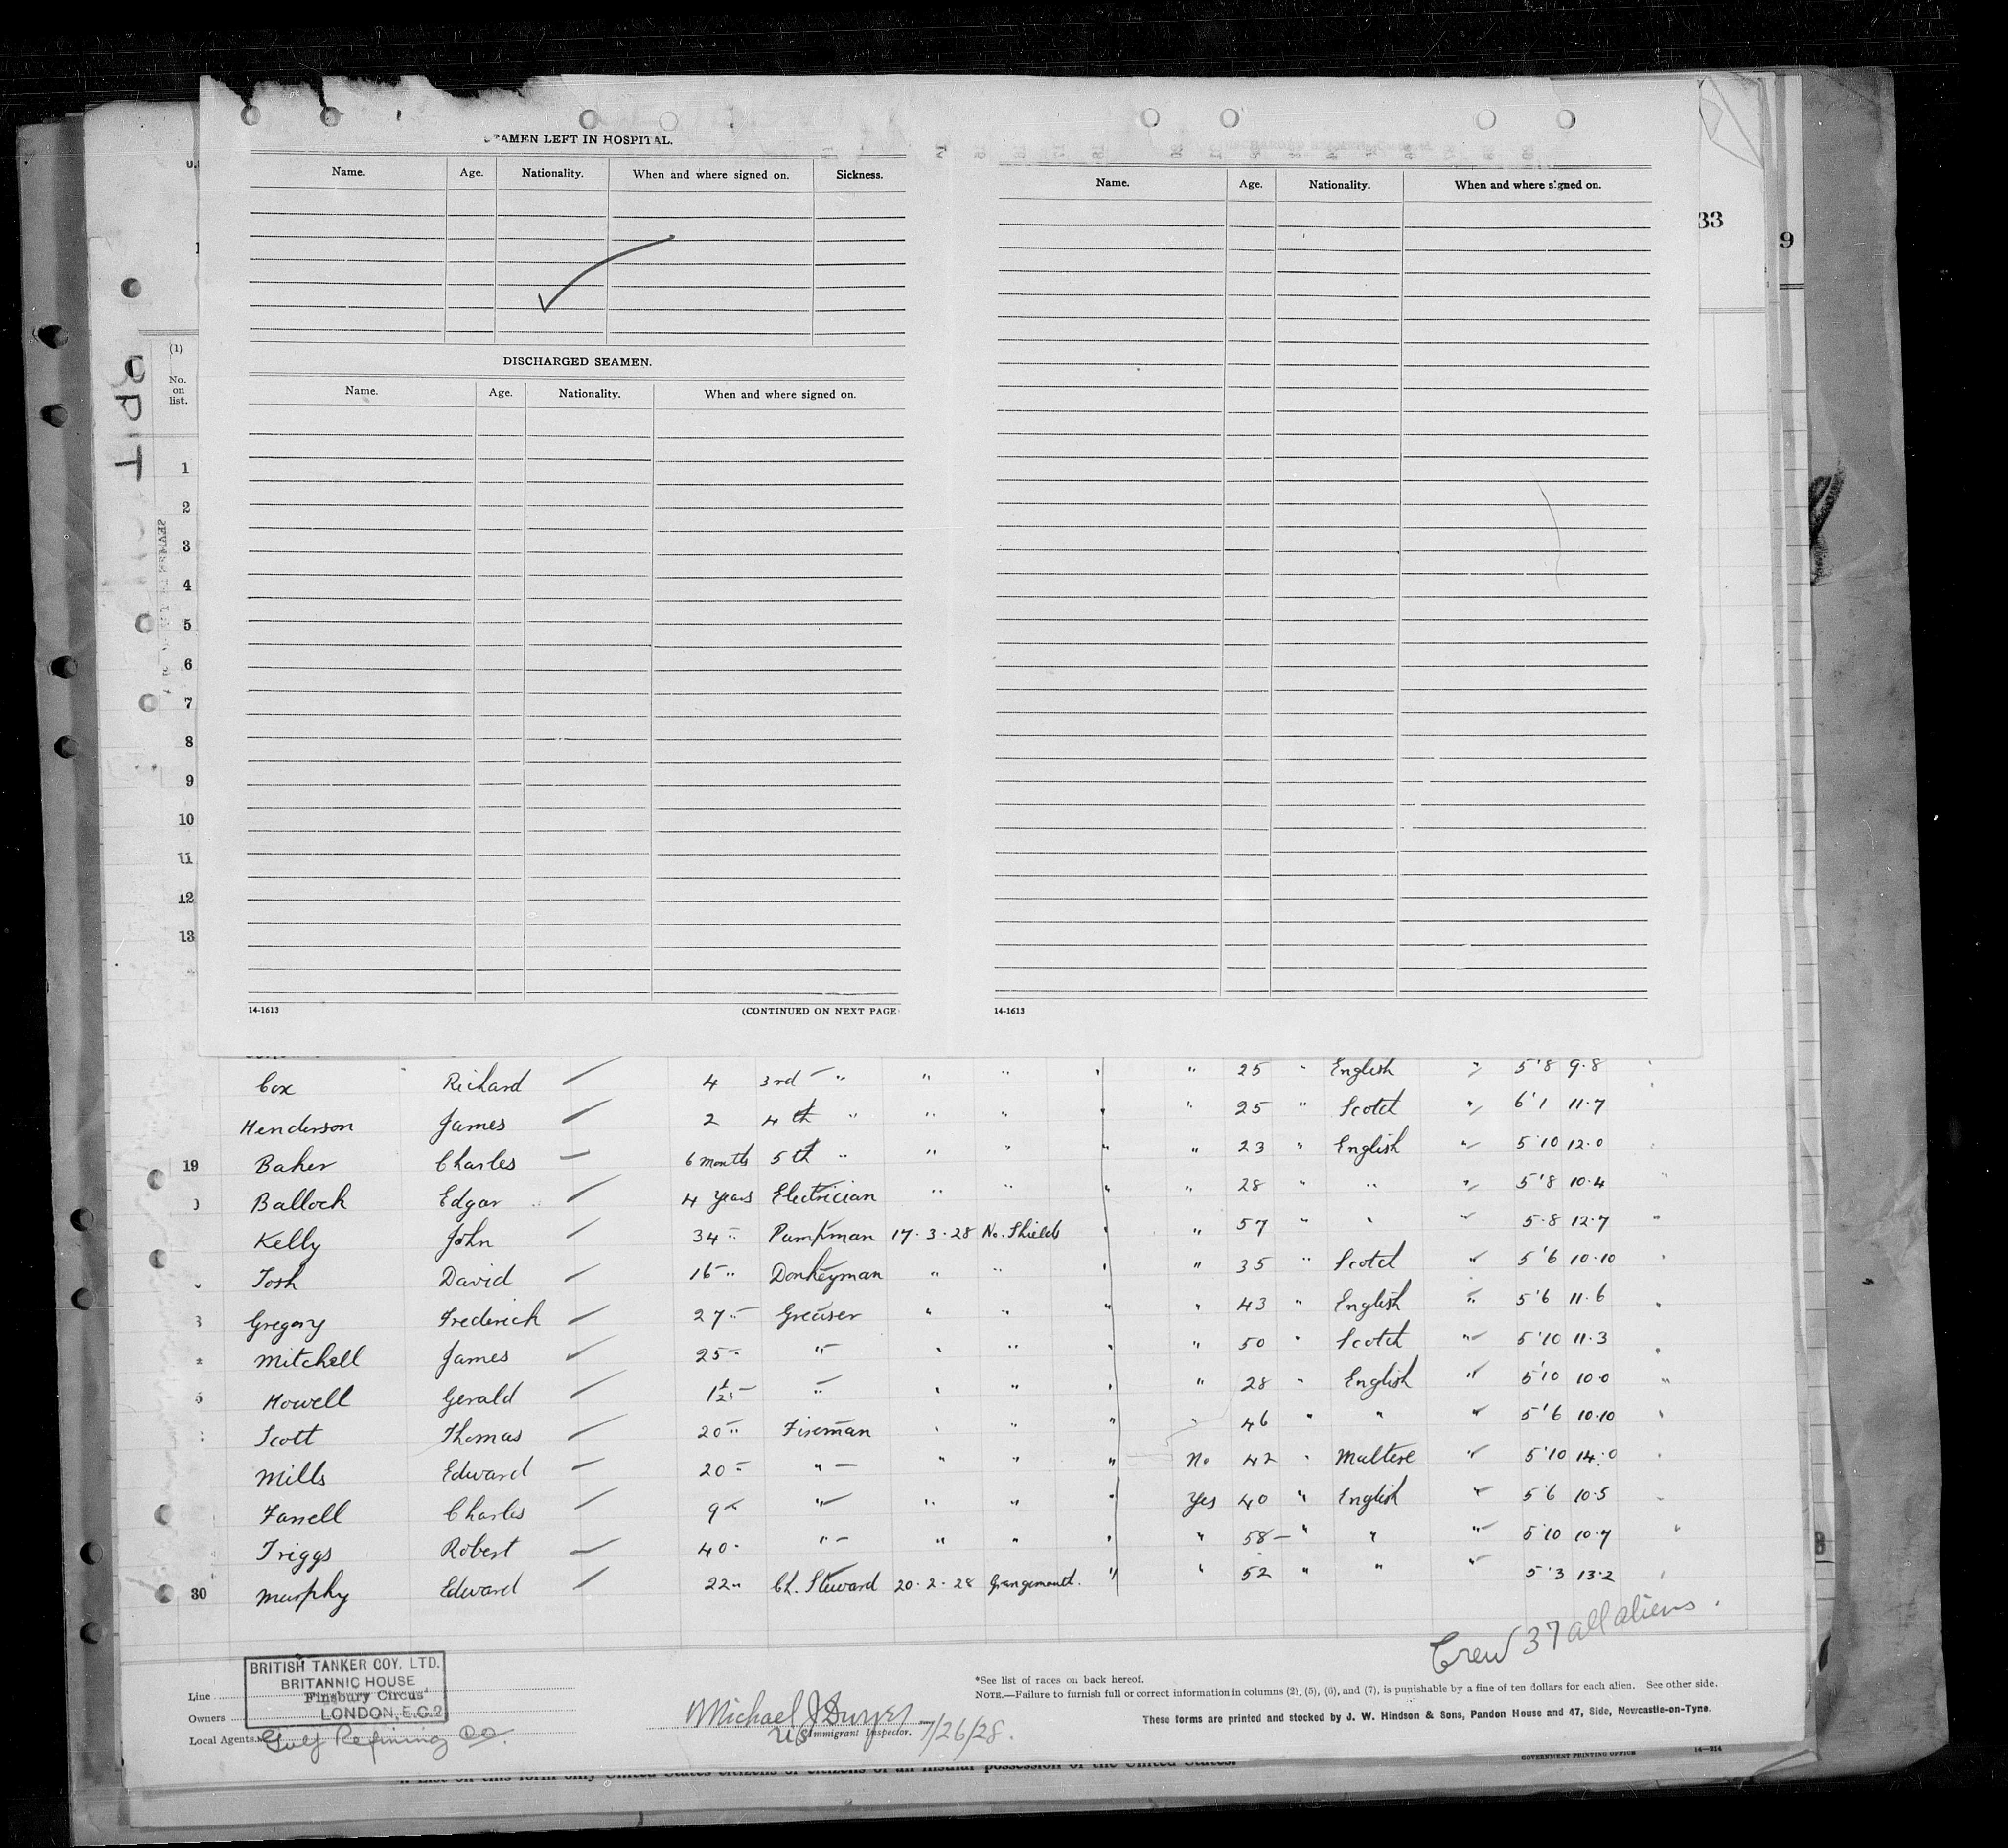 SEAMEN LEFT IN HOSPITAL.
Name. Age. Nationality. When and where signed on. Sickness.
DISCHARGED SEAMEN.
Name. Age. Nationality. When and where signed on.
14-1613 (CONTINUED ON NEXT PAGE
Name. Age. Nationality. When and where signed on.
14-1613
33
9
(1)
No.
on
list.
1
2
3
4
5
6
7
8
9
10
11
12
13
Cox Richard 4 3rd " " " " 25 " English " 5'8 9.8
Henderson James 2 4th " " " " 25 " Scotch " 6'1 11.7
19 Baker Charles 6 months 5th " " " " " 23 " English " 5'10 12.0
Balloch Edgar 4 years Electrician " " " " 28 " " " 5'8 10.4
Kelly John 34 " Pumpman 17.3.28 No. Shields " " 57 " " " 5.8 12.7
Tosh David 15 " Donkeyman " " " " 35 " Scotch " 5'6 10.10
Gregory Frederick 27 " Greaser " " " " 43 " English " 5'6 11.6
Mitchell James 25 " " " " " " 50 " Scotch " 5'10 11.3
Howell Gerald 1½ " " " " " 28 " English " 5'10 10.0
Scott Thomas 20 " Fireman " " " " 46 " " " 5'6 10.10
Mills Edward 20 " " " " " No 42 " Maltese " 5'10 14.0
Farrell Charles 9 " " " " " Yes 40 " English " 5'6 10.5
Triggs Robert 40 " " " " " " 58 " " " 5'10 10.7
30 Murphy Edward 22 " Ch. Steward 20.2.28 Grangemouth. " " 52 " " " 5'3 13.2
Crew 37 all aliens.
BRITISH TANKER COY. LTD.
BRITANNIC HOUSE
Finsbury Circus
LONDON, E.C.2
Line
Owners
Local Agents. Gulf Refining Co.
Michael J Dwyer
US Immigrant Inspector. 7/26/28.
*See list of races on back hereof.
NOTE.—Failure to furnish full or correct information in columns (2), (5), (6), and (7), is punishable by a fine of ten dollars for each alien. See other side.
These forms are printed and stocked by J. W. Hindson & Sons, Pandon House and 47, Side, Newcastle-on-Tyne.
GOVERNMENT PRINTING OFFICE 14-214
List on this form only United States citizens or citizens of an insular possession of the United States.